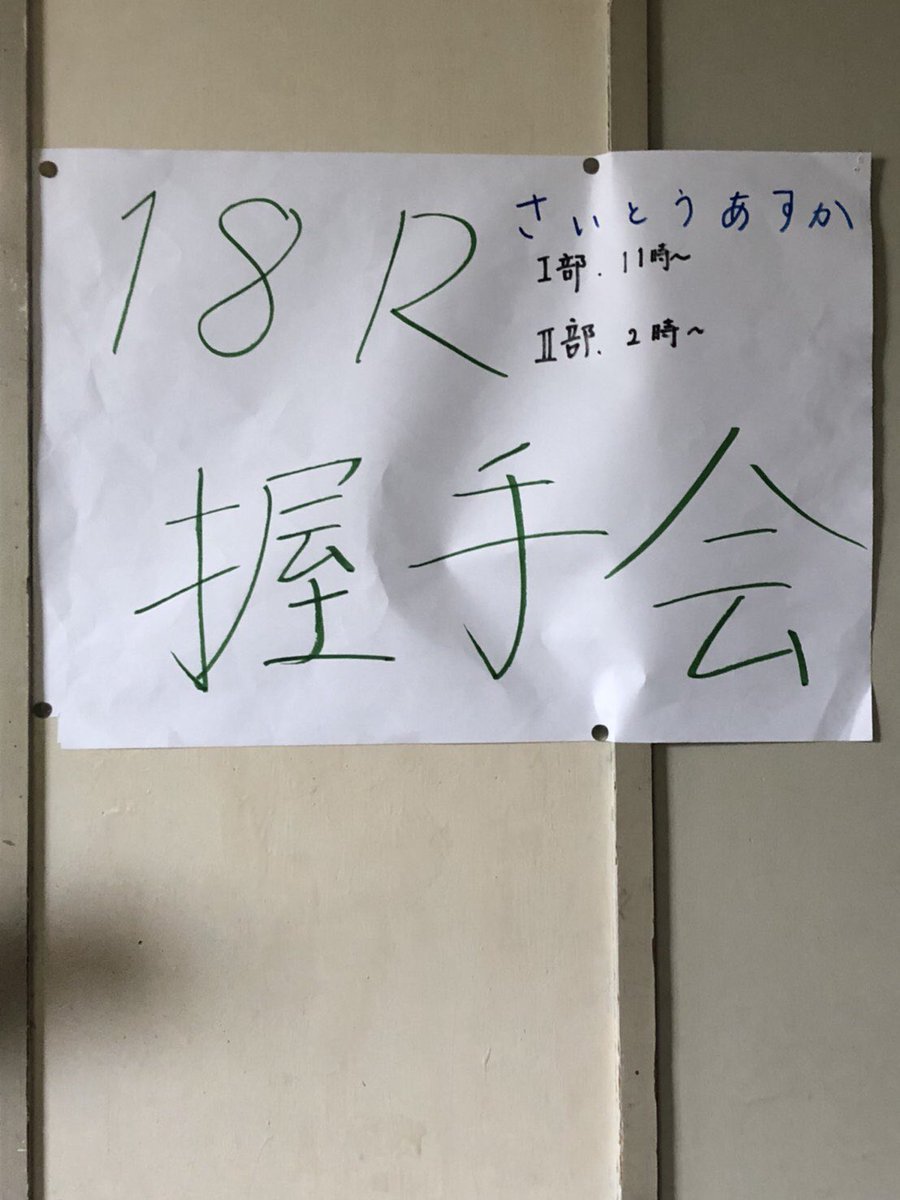 18R
さいとうあすか
I部. 11時~
II部. 2時~
握手会